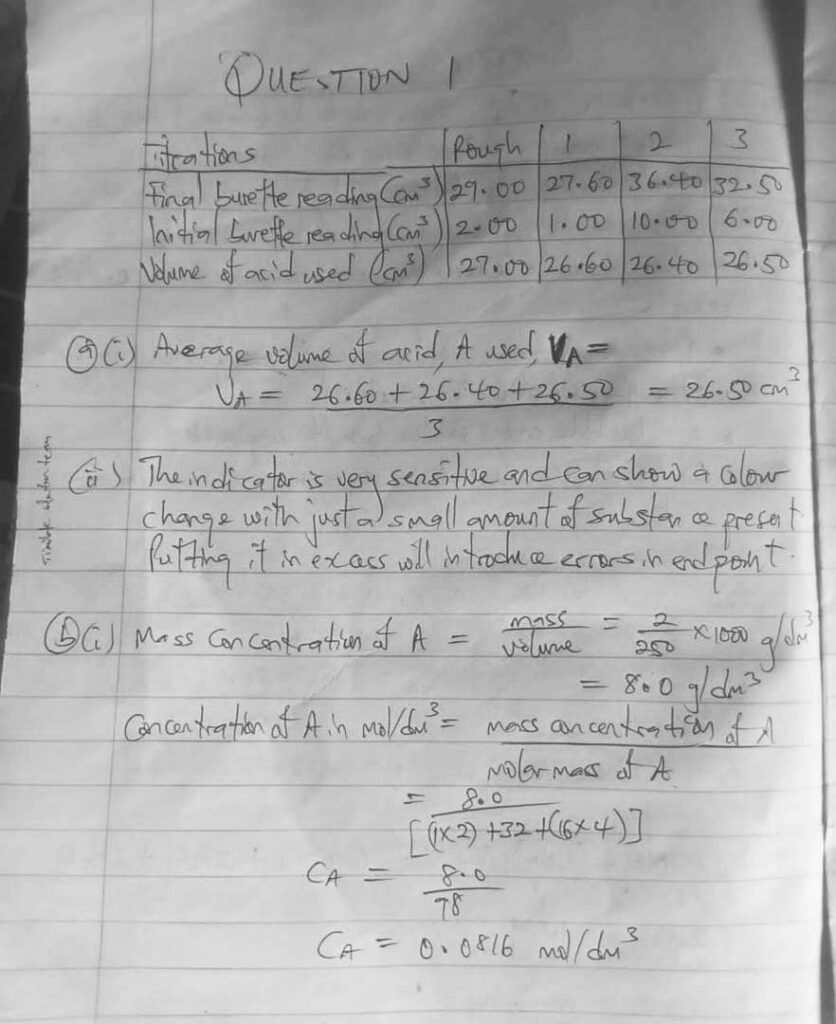 QUESTION 1
Titrations Rough 1 2 3
Final burette reading (cm³) 29.00 27.60 36.40 32.50
Initial burette reading (cm³) 2.00 1.00 10.00 6.00
Volume of acid used (cm³) 27.00 26.60 26.40 26.50
(a)(i) Average volume of acid, A used, VA =
VA = 26.60 + 26.40 + 26.50 = 26.50 cm³
3
(ii) The indicator is very sensitive and can show a colour
change with just a small amount of substance present
Putting it in excess will introduce errors in end point.
(b)(i) Mass concentration of A = mass = 2 × 1000 g/dm³
volume 250
= 8.0 g/dm³
Concentration of A in mol/dm³ = mass concentration of A
molar mass of A
= 8.0
[(1×2) + 32 + (16×4)]
CA = 8.0
78
CA = 0.0816 mol/dm³